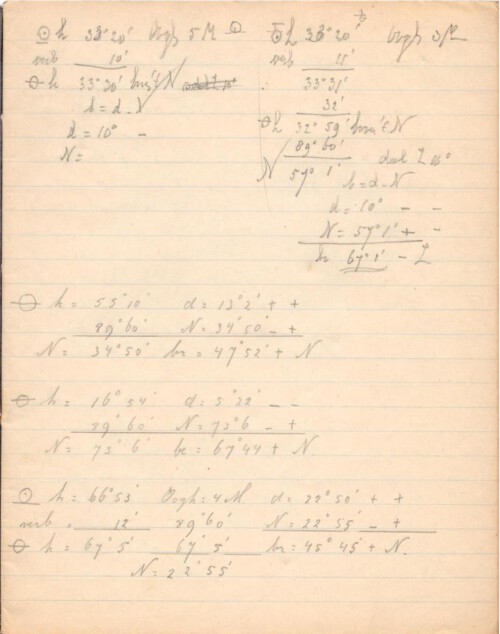 ⊙ h 33°20' Oogh 5 M ⊙
verb 10'
⊖ h 33°30' N
b = d - N
d = 10° -
N =
h 33°20' Oogh 5 M
verb 11'
33°31'
32'
⊖ h 32°59' N
89°60'
N 57°1'
b = d - N
d = 10° - -
N = 57°1' + -
br 67°1' - Z
⊖ h = 55°10' d = 13°2' + +
89°60' N = 34°50' - +
N = 34°50' br = 47°52' + N
⊖ h = 16°54' d = 5°22' - -
89°60' N = 73°6' - +
N = 73°6' br = 67°44' + N.
⊙ h = 66°53' Oogh = 4 M d = 22°50' + +
verb = 12' 89°60' N = 22°55' - +
⊖ h = 67°5' 67°5' br = 45°45' + N.
N = 22°55'